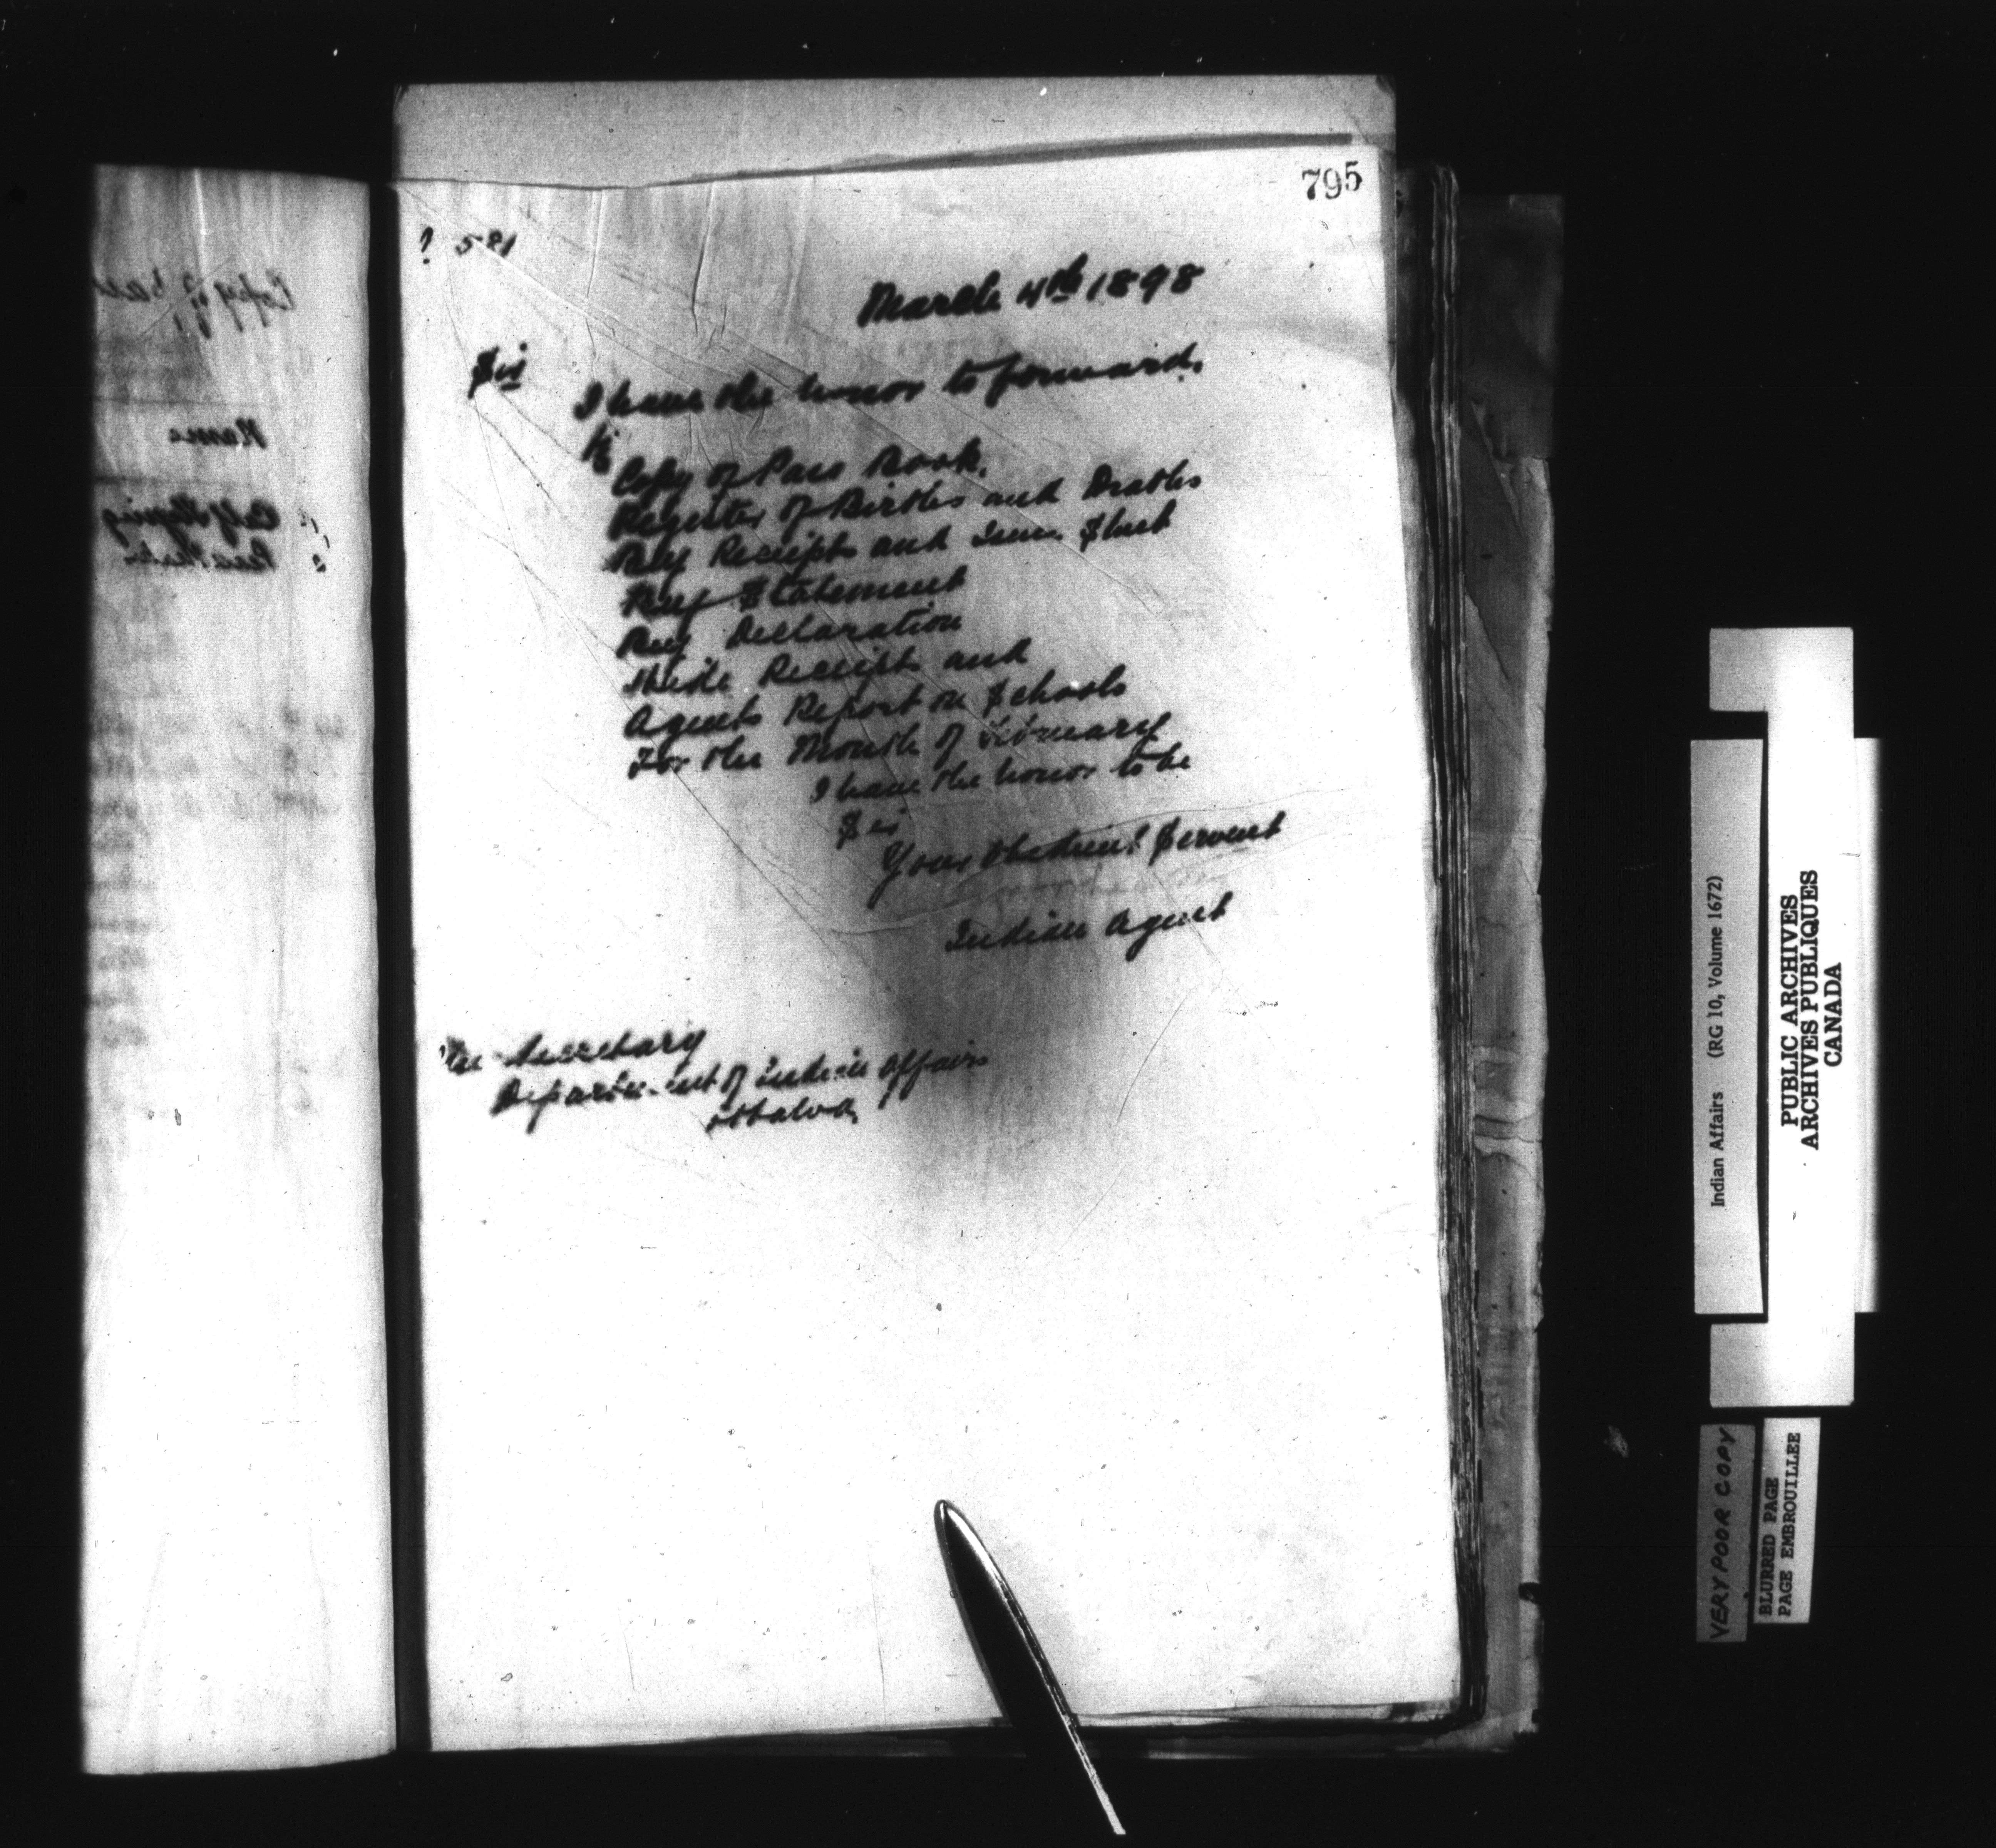 795
581
March 4th 1898
Sir
I have the honor to forward.
Copy of Pass Book.
Register of Births and Deaths
Beef Receipts and Issue Sheet
Beef Statement
Beef Declaration
Hide Receipts and
Agents Report on Schools
For the Month of February
I have the honor to be
Sir
Your obedient Servant
Indian Agent
The Secretary
Department of Indian Affairs
Ottawa
Copy of
Name
Indian Affairs (RG 10, Volume 1672)
PUBLIC ARCHIVES
ARCHIVES PUBLIQUES
CANADA
VERY POOR COPY
BLURRED PAGE
PAGE EMBROUILLEE